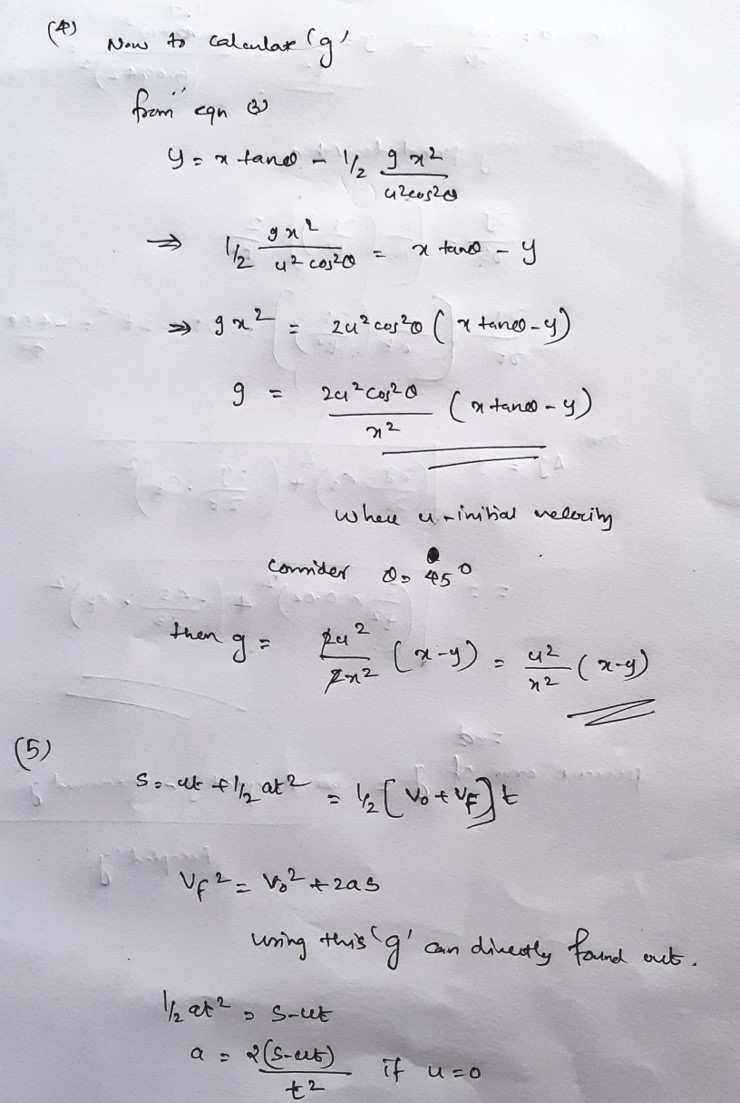 (4) Now to calculate 'g'
from eqn (3)
y = x tanθ - 1/2 gx²/u²cos²θ
⇒ 1/2 gx²/u²cos²θ = x tanθ - y
⇒ gx² = 2u²cos²θ (x tanθ - y)
g = 2u²cos²θ/x² (x tanθ - y)
where u - initial velocity
consider θ = 45°
then g = 2u²/2x² (x-y) = u²/x² (x-y)
(5)
S = ut + 1/2 at² = 1/2 [V₀ + V_F] t
V_F² = V₀² + 2as
using this 'g' can directly found out.
1/2 at² = S-ut
a = 2(S-ut)/t² if u=0